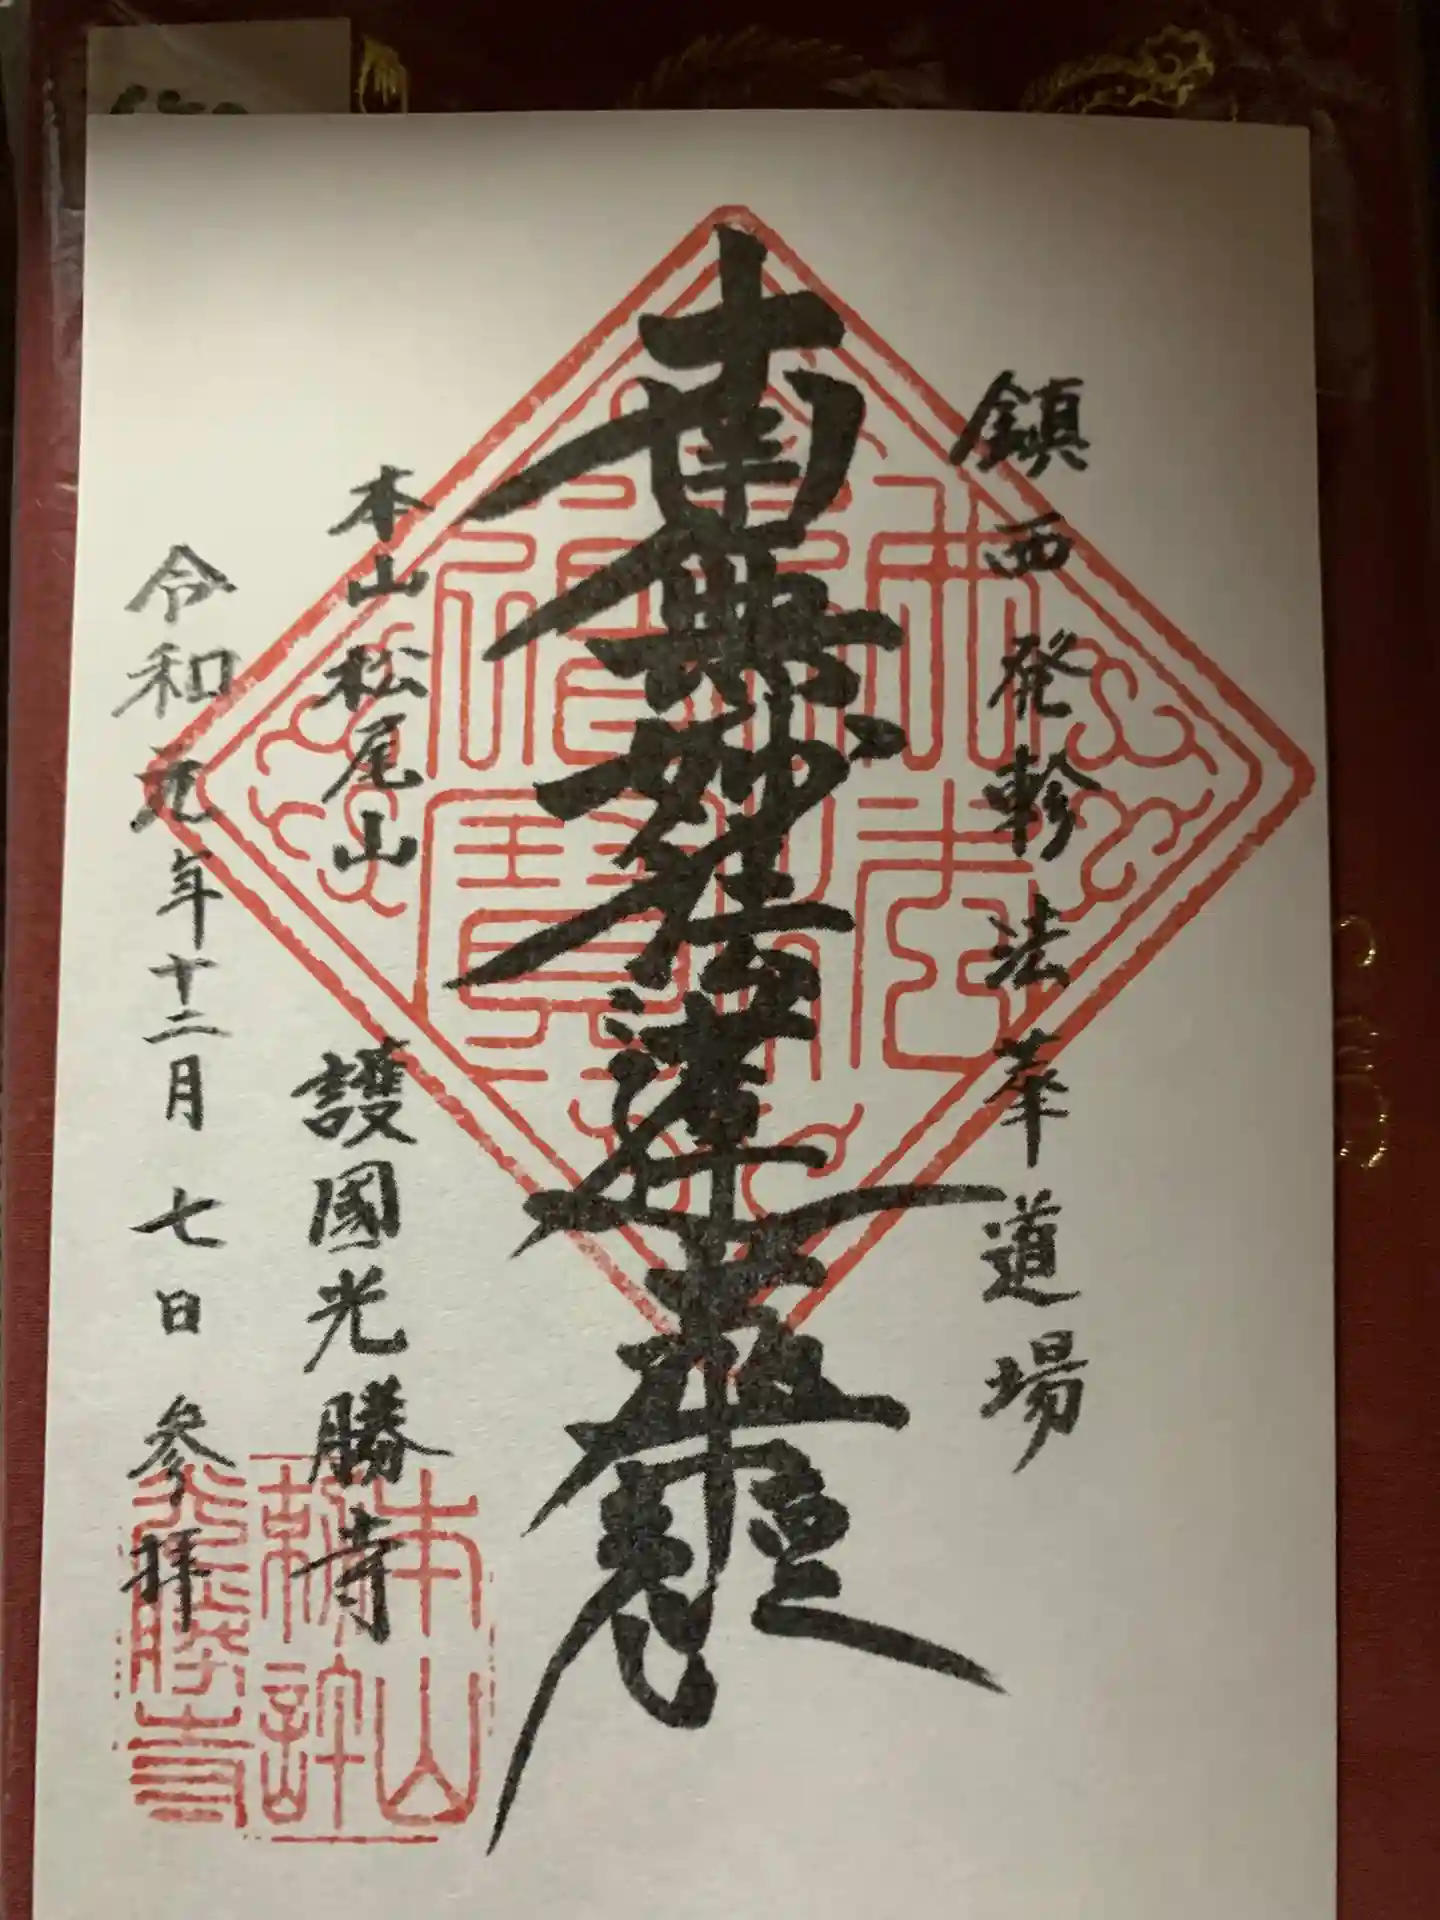 鎮西発軫法華道場
南無妙法蓮華経
本山松尾山 護國光勝寺
令和元年十二月七日 参拝
本山
光勝寺